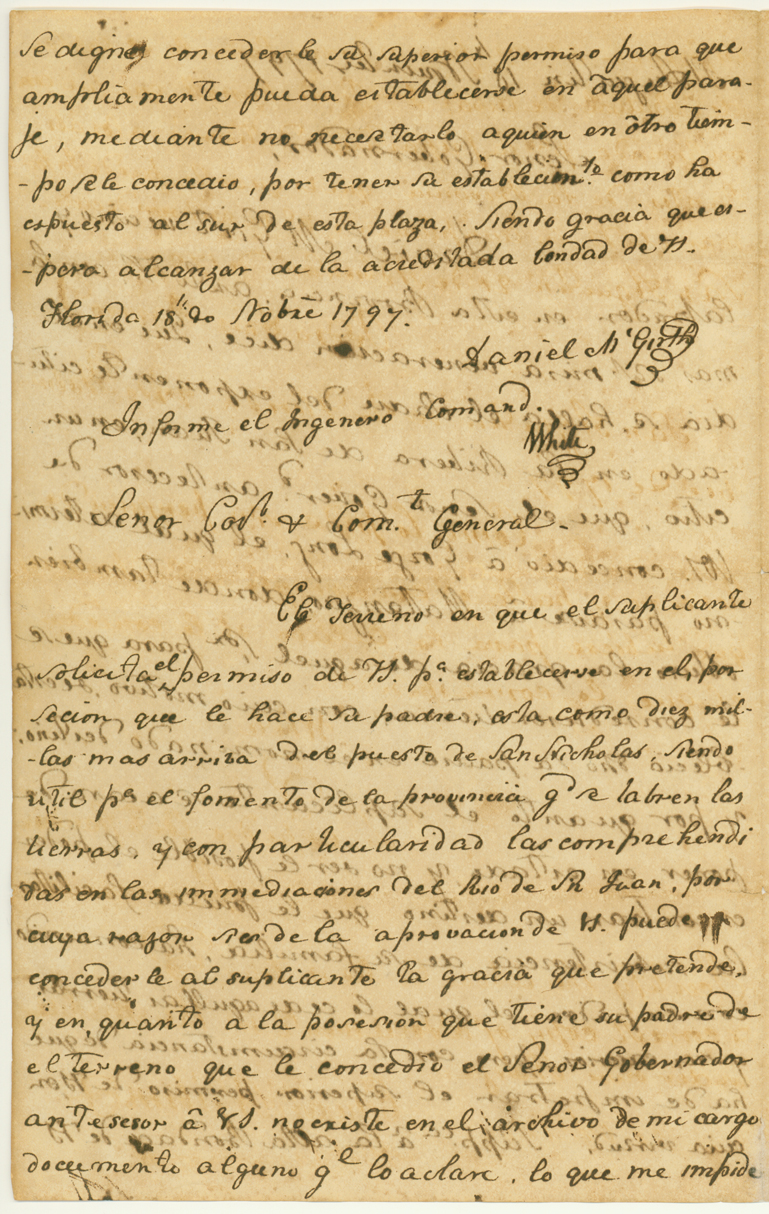 se digne concederle su superior permiso para que
ampliamente pueda establecerse en àquel para-
je, mediante no necesitarlo aquien en òtro tiem-
-po se le concedio, por tener su establecim.to como ha
espuesto al sur de esta plaza, siendo gracia que es-
-pera alcanzar de la acreditada bondad de VS.
Florida 18 de Nobre 1797.
Daniel McGirth
Informe el Ingenero Comand.
White
Senor Gov.r & Com.t General.
El Terreno en que el suplicante
solicita el permiso de VS. pa. establecerse en el, por
secion que le hace su padre, esta como diez mil-
-las mas arriva del puesto de San Nicholas, siendo
util pa el fomento de la provincia qe se labren las
tierras, y con particularidad las comprehendi
das en las immediaciones del Rio de Sn Juan, por
cuya razon ser de la aprovacion de VS. puede
concederle al suplicante la gracia que pretende,
y en quanto a la posesion que tiene su padre de
el terreno que le concedio el Senor Gobernador
antesesor â VS. no existe en el archivo de mi cargo
documento alguno qe lo aclare, lo que me impide